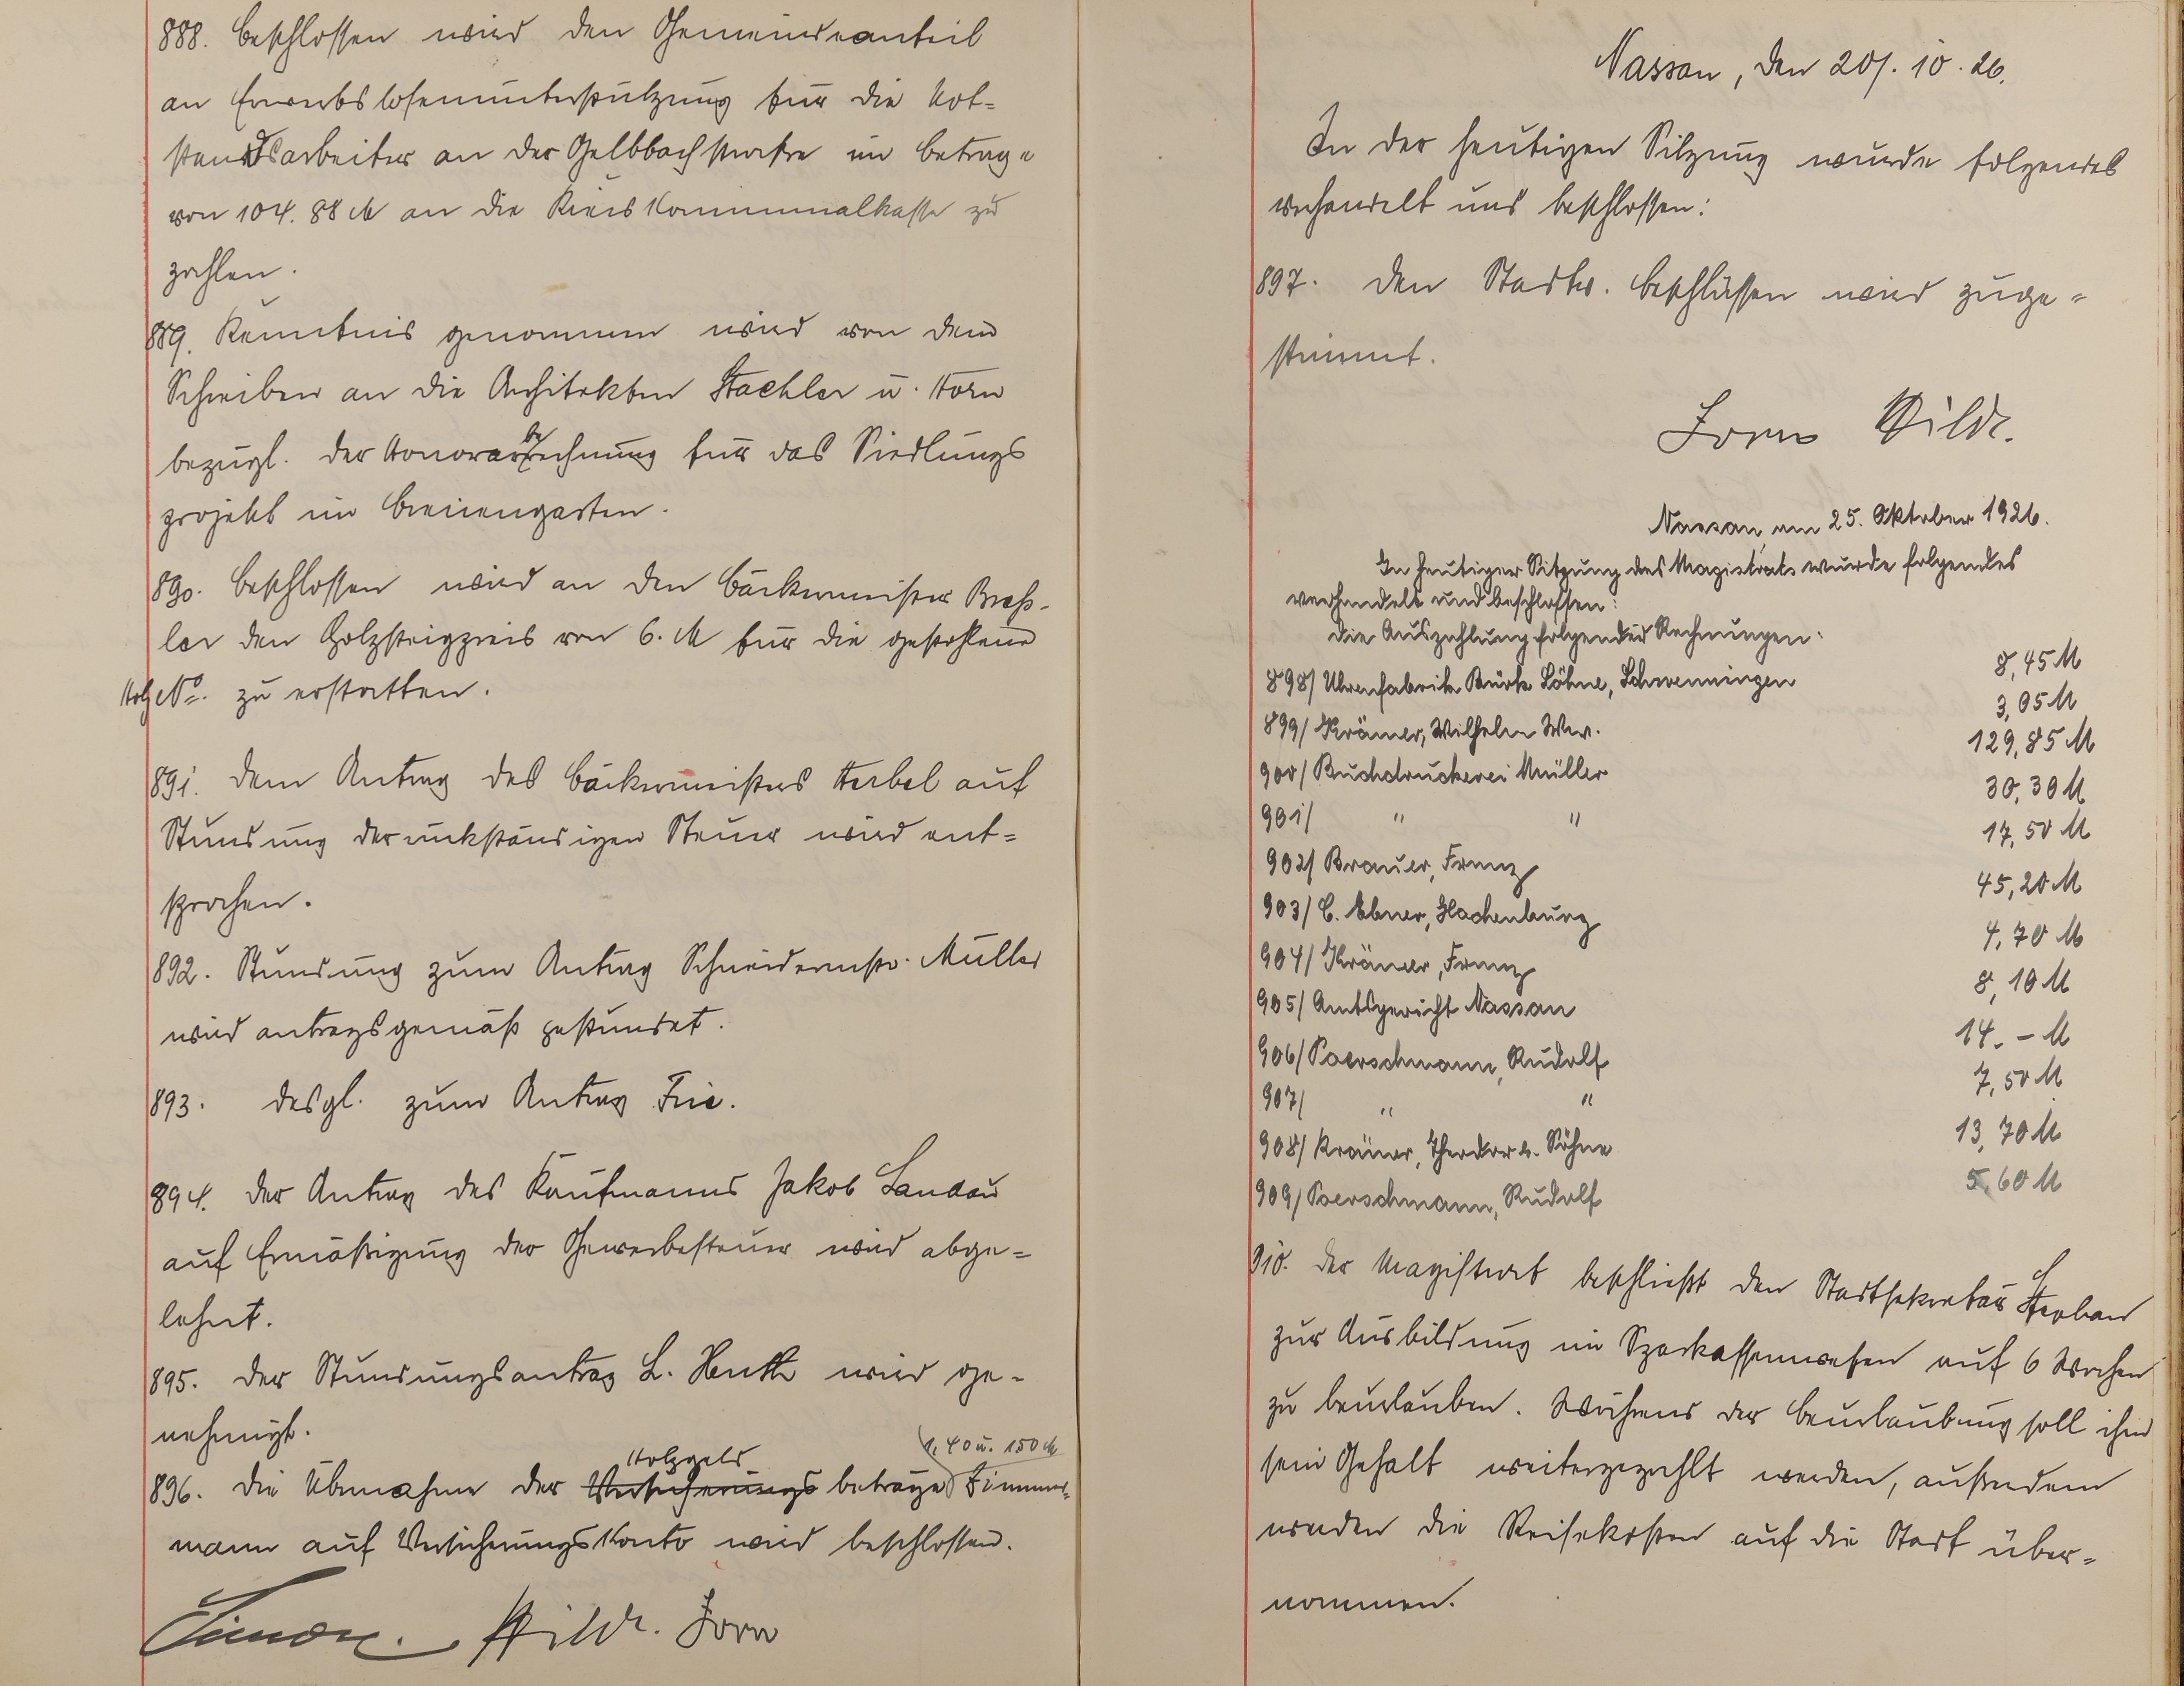 888. Beschlossen wird den Gemeindeanteil
an Erwerbslosenunterstützung für die Not-
standsarbeiter an der Gelbbachstraße im Betrage
von 104.88 M an die Kreiskommunalkasse zu
zahlen.
889. Kenntnis genommen wird von dem
Schreiben an die Architekten Staehler u. Horn
bezügl. der Honorarberechnung für das Siedlungs
projekt im Breiengarten.
890. Beschlossen wird an den Bäckermeister Preß-
ler den Holzsteigpreis von 6. M für die gestohlene
Holz No. zu erstatten.
891. Dem Antrag des Bäckermeisters Herbel auf
Stundung der rückständigen Steuer wird ent-
sprochen.
892. Stundung zum Antrag Schneidermstr. Müller
wird antragsgemäß gestundet.
893. desgl. zum Antrag
894. Der Antrag des Kaufmanns Jakob Landau
auf Ermäßigung der Gewerbesteuer wird abge-
lehnt.
895. Der Stundungsantrag L. Huth wird ge-
nehmigt.
Holzgeld 40 u. 150 M
896. Die Übernahme der Versicherungs beträge Zimmer-
mann auf Versicherungskonto wird beschlossen.
Hild. Zorn
Nassau, den 20/. 10. 26.
In der heutigen Sitzung wurde folgendes
verhandelt und beschlossen:
897. Den Stadtv. Beschlüssen wird zuge-
stimmt.
Zorn Hild.
Nassau, am 25. Oktober 1926.
In heutiger Sitzung des Magistrats wurde folgendes
verhandelt und beschlossen:
Die Auszahlung folgender Rechnungen:
898/ Uhrenfabrik Bürk Söhne, Schwenningen 8,45 M
899/ Krämer, Wilhelm Ww. 3,05 M
900/ Buchdruckerei Müller 129,85 M
901/ " " 30,30 M
902/ Brauer, Franz 17,50 M
903/ C. Ebner, Hachenburg 45,20 M
904/ Krämer, Franz 4,70 M
905/ Amtsgericht Nassau 8,10 M
906/ Poerschmann, Rudolf 14.- M
907/ " " 7,50 M
908/ Krämer, Theodor u. Söhne 13,70 M
909/ Poerschmann, Rudolf 5,60 M
910. Der Magistrat beschließt den Stadtsekretär
zur Ausbildung im Sparkassenwesen auf 6 Wochen
zu beurlauben. Während der Beurlaubung soll ihm
sein Gehalt weitergezahlt werden, außerdem
werden die Reisekosten auf die Stadt über-
nommen.